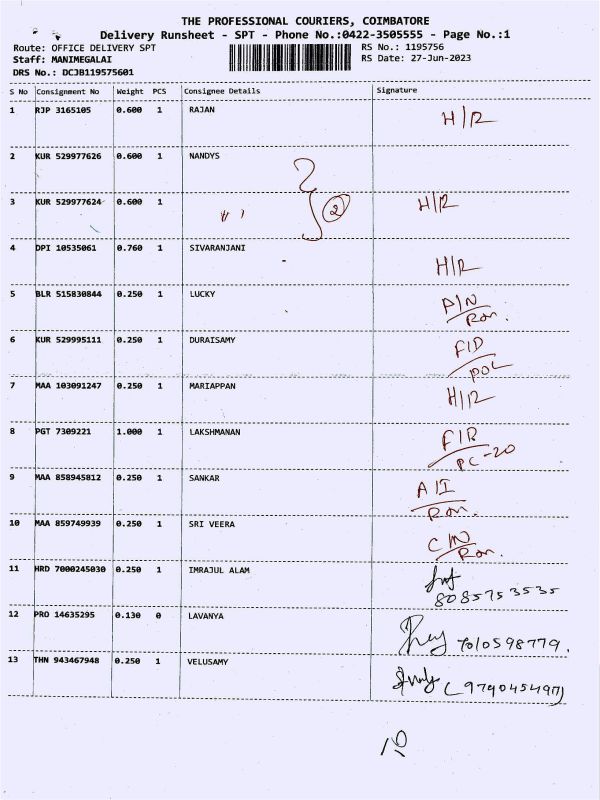 THE PROFESSIONAL COURIERS, COIMBATORE
Delivery Runsheet - SPT - Phone No.:0422-3505555 - Page No.:1
Route: OFFICE DELIVERY SPT RS No.: 1195756
Staff: MANIMEGALAI RS Date: 27-Jun-2023
DRS No.: DCJB119575601
S No Consignment No Weight PCS Consignee Details Signature
1 RJP 3165105 0.600 1 RAJAN H/R
2 KUR 529977626 0.600 1 NANDYS
3 KUR 529977624 0.600 1 " ) 2 H/R
4 DPI 10535061 0.760 1 SIVARANJANI H/R
5 BLR 515830844 0.250 1 LUCKY P/N
Ron.
6 KUR 529995111 0.250 1 DURAISAMY F/D
POL
7 MAA 103091247 0.250 1 MARIAPPAN H/R
8 PGT 7309221 1.000 1 LAKSHMANAN F/R
PC-20
9 MAA 858945812 0.250 1 SANKAR A/I
Ron.
10 MAA 859749939 0.250 1 SRI VEERA C/N
Ron.
11 HRD 7000245030 0.250 1 IMRAJUL ALAM
8085753535
12 PRO 14635295 0.130 0 LAVANYA 7010598779.
13 THN 943467948 0.250 1 VELUSAMY (9790454971)